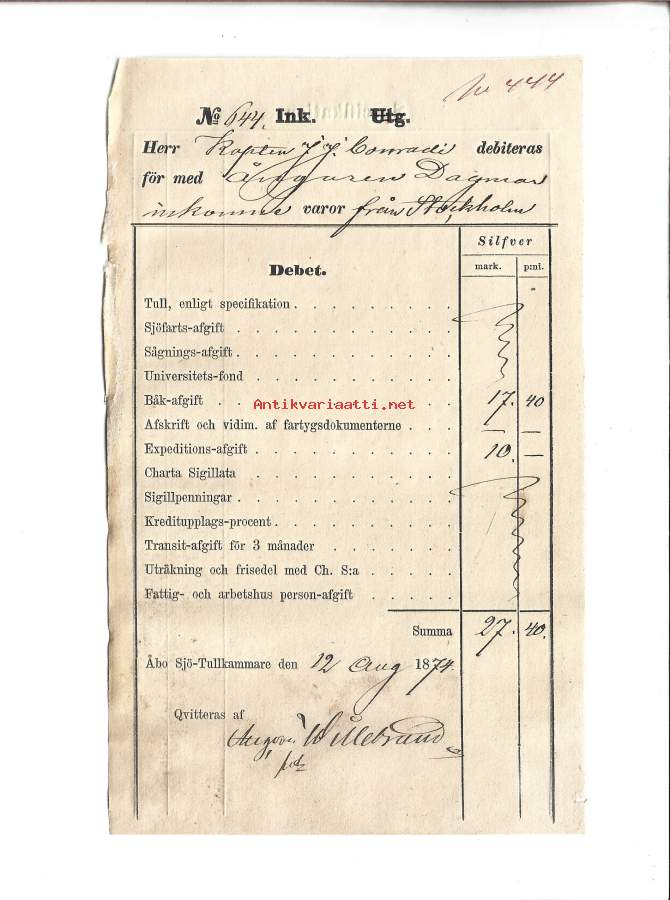 No 444
№ 644. Ink. Utg.
Herr Kapten J. J. Conradi debiteras
för med Ångaren Dagmar
inkomne varor från Stockholm
Silfver
Debet. mark. p:ni.
Tull, enligt specifikation
Sjöfarts-afgift
Sågnings-afgift
Universitets-fond
Båk-afgift 17. 40
Antikvariaatti.net
Afskrift och vidim. af fartygsdokumenterne — —
Expeditions-afgift 10. —
Charta Sigillata
Sigillpenningar
Kreditupplags-procent
Transit-afgift för 3 månader
Uträkning och frisedel med Ch. S:a
Fattig- och arbetshus person-afgift
Summa 27. 40.
Åbo Sjö-Tullkammare den 12 Aug 1874.
Qvitteras af
Willebrand